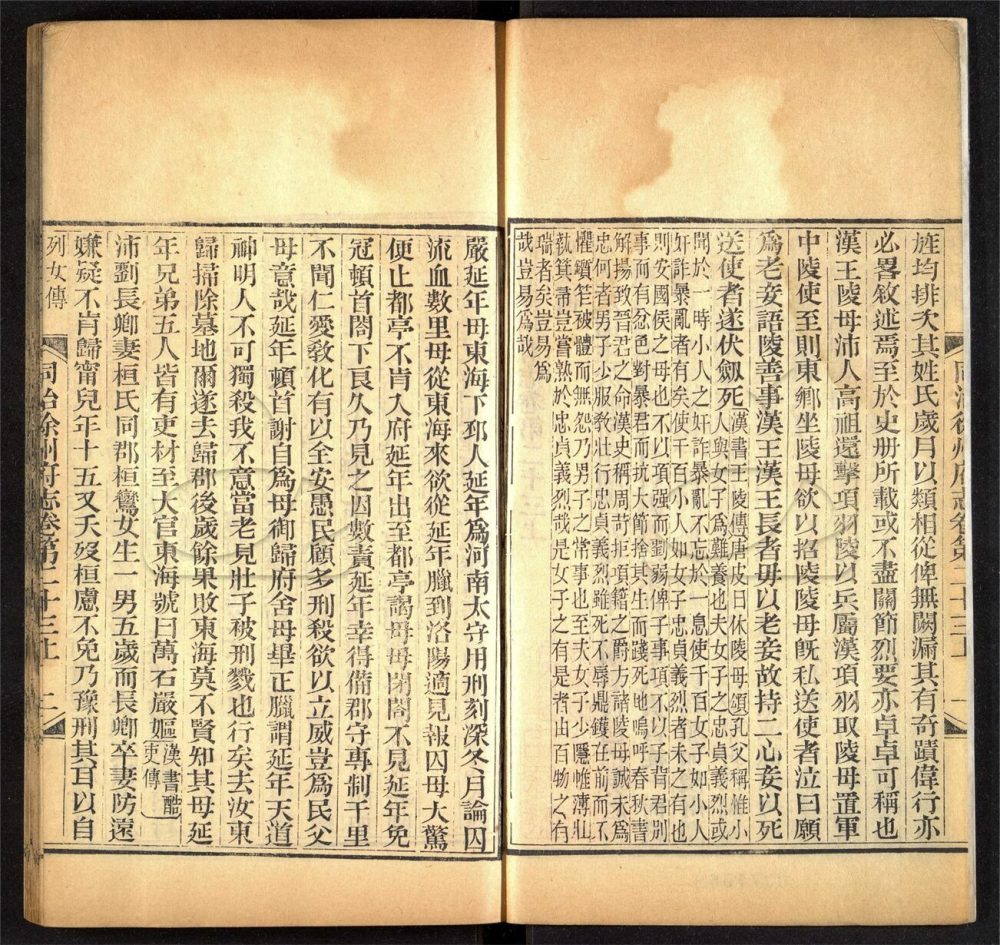 旌均排次其姓氏歲月以類相從俾無闕漏其有奇蹟偉行亦
必畧敘述焉至於史册所載或不盡關節烈要亦卓卓可稱也
漢王陵母沛人高祖還擊項羽陵以兵屬漢項羽取陵母置軍
中陵使至則東鄉坐陵母欲以招陵陵母旣私送使者泣曰願
爲老妾語陵善事漢王漢王長者毋以老妾故持二心妾以死
送使者遂伏劒死漢書王陵傳唐皮日休陵母頌孔父稱惟小
人與女子爲難養也夫女子之忠貞義烈或
聞於一時小人之奸詐暴亂不忘於一息使千百女子如小人
奸詐暴亂者有矣使千百小人如女子忠貞義烈者未之有也
則安國侯之母也不以項强而劉弱俾子事項不以子背君別
事而有忿色對暴君而抗大節捨其生而踐死地嗚呼春秋書
解揚致晉君之命漢史稱周苛拒項籍之爵方諸陵母誠未爲
忠何者男子少服敎壯行忠貞義烈雖死不辱鼎鑊在前而不
懼纊笄被體而無怨乃男子之常事也至夫女子少隱帷薄壯
執箕帚豈嘗熟於忠貞義烈哉是女子之有是者出百物之有
瑞者矣豈易爲
哉豈易爲哉
嚴延年母東海下邳人延年爲河南太守用刑刻深冬月論囚
流血數里母從東海來欲從延年臘到洛陽適見報囚母大驚
便止都亭不肯入府延年出至都亭謁母母閉閤不見延年免
冠頓首閤下良久乃見之因數責延年幸得備郡守專制千里
不聞仁愛敎化有以全安愚民顧多刑殺欲以立威豈爲民父
母意哉延年頓首謝自爲母御歸府舍母畢正臘謂延年天道
神明人不可獨殺我不意當老見壯子被刑戮也行矣去汝東
歸掃除墓地爾遂去歸郡後歲餘果敗東海莫不賢知其母延
年兄弟五人皆有吏材至大官東海號曰萬石嚴嫗漢書酷
吏傳
沛劉長卿妻桓氏同郡桓鸞女生一男五歲而長卿卒妻防遠
嫌疑不肯歸甯兒年十五又夭歿桓慮不免乃豫刑其耳以自
列女傳
同治徐州府志卷第二十三上
二